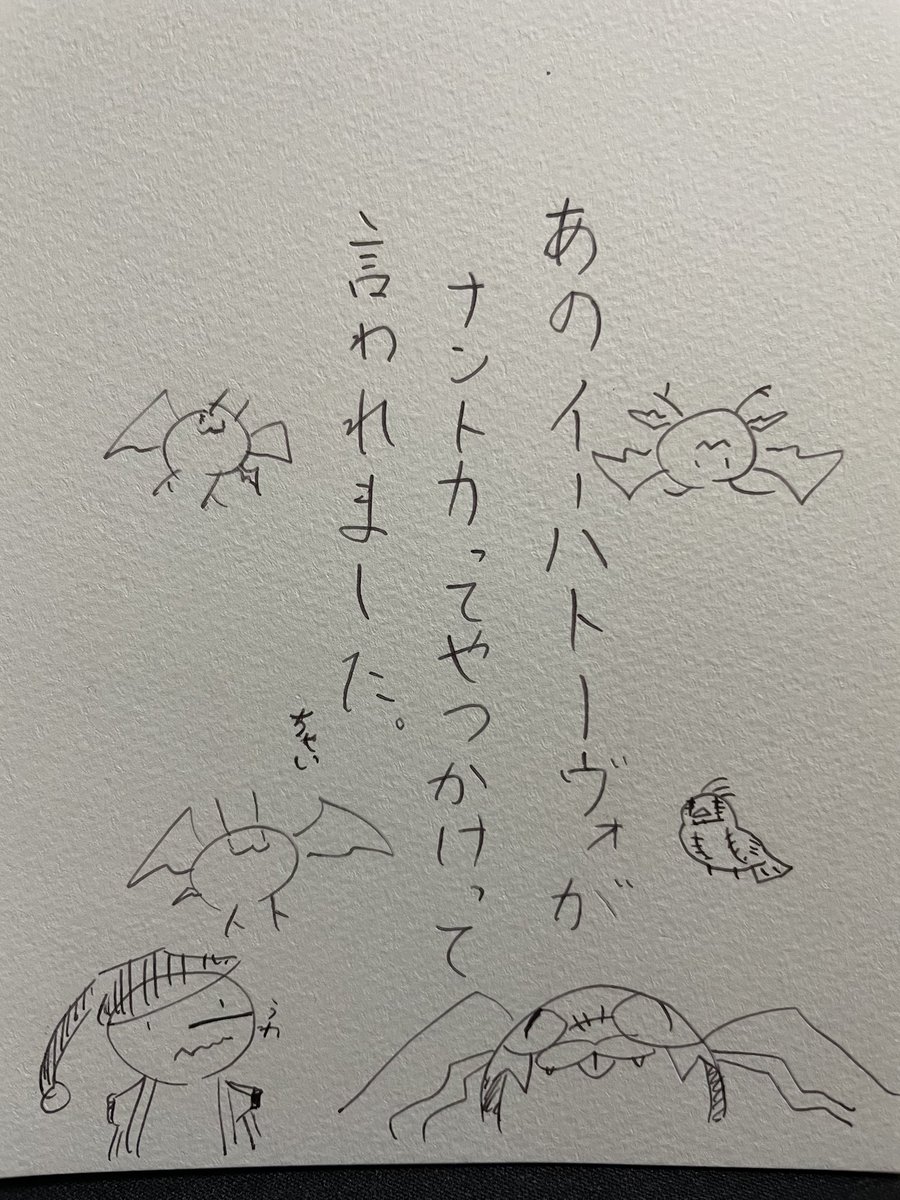 あのイーハトーヴォが
ナントカってやつかけって
言われました。
ちゃい